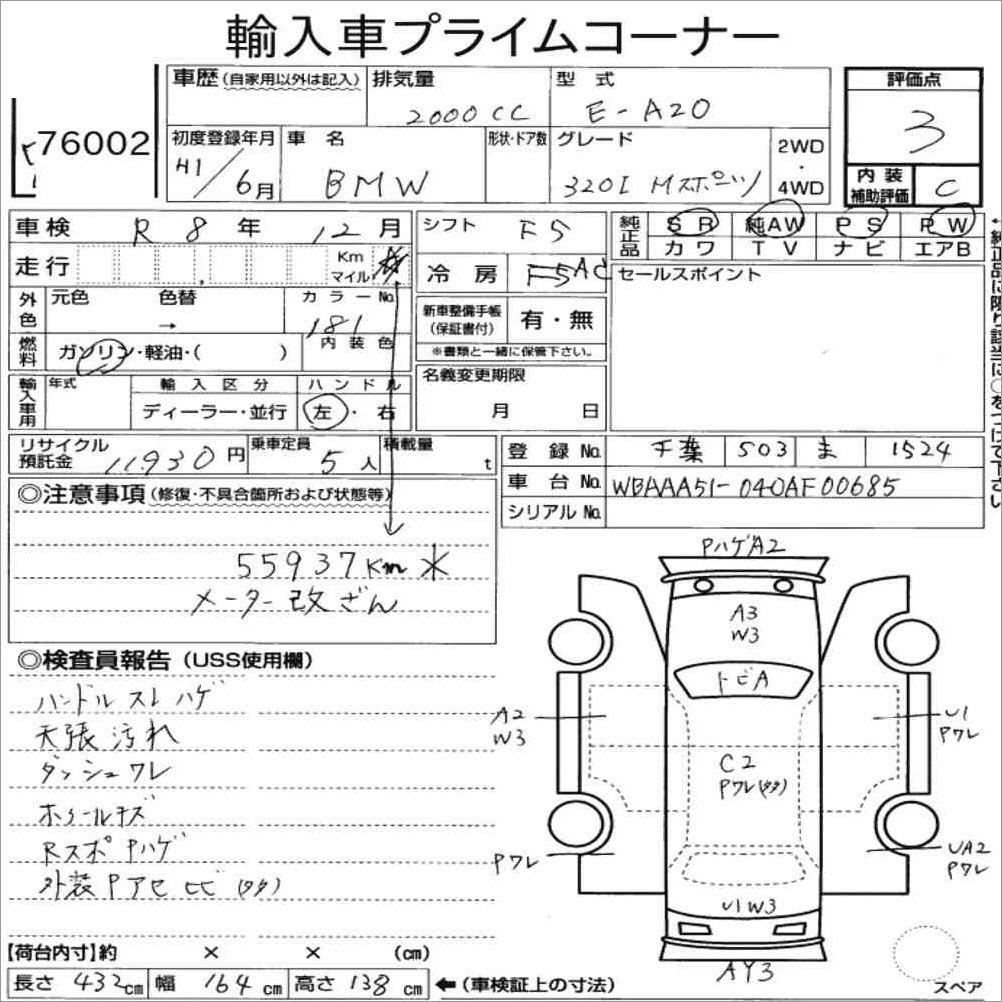 輸入車プライムコーナー
76002
車歴(自家用以外は記入)
排気量
2000CC
型式
E-A20
評価点
3
初度登録年月
H1/6月
車名
BMW
形状・ドア数
グレード
320I Mスポーツ
2WD・4WD
内装補助評価
C
車検 R8年 12月
シフト
F5
純正品
SR 純AW PS PW
カワ TV ナビ エアB
走行
Km
マイル
冷房
AC
セールスポイント
←純正品に限り該当に○をつけて下さい
外色
元色 色替
→
カラーNo.
181
内装色
新車整備手帳(保証書付)
有・無
※書類と一緒に保管下さい。
燃料
ガソリン・軽油・( )
名義変更期限
月 日
輸入車用
年式
輸入区分
ディーラー・並行
ハンドル
左・右
リサイクル預託金
11930円
乗車定員
5人
積載量
t
登録No.
千葉 503 ま 1524
車台No.
WBAAA51-040AF00685
シリアルNo.
◎注意事項(修復・不具合箇所および状態等)
55937Km *
メーター改ざん
◎検査員報告(USS使用欄)
ハンドルスレハゲ
天張汚れ
ダッシュワレ
ホイールキズ
RスポPハゲ
外装Pアセヒビ(タタ)
PハゲA2
A3
W3
トビA
A2
W3
U1
Pワレ
C2
Pワレ(タタ)
Pワレ
UA2
Pワレ
U1W3
AY3
スペア
【荷台内寸】約 × × (cm)
長さ 432cm 幅 164cm 高さ 138cm ←(車検証上の寸法)